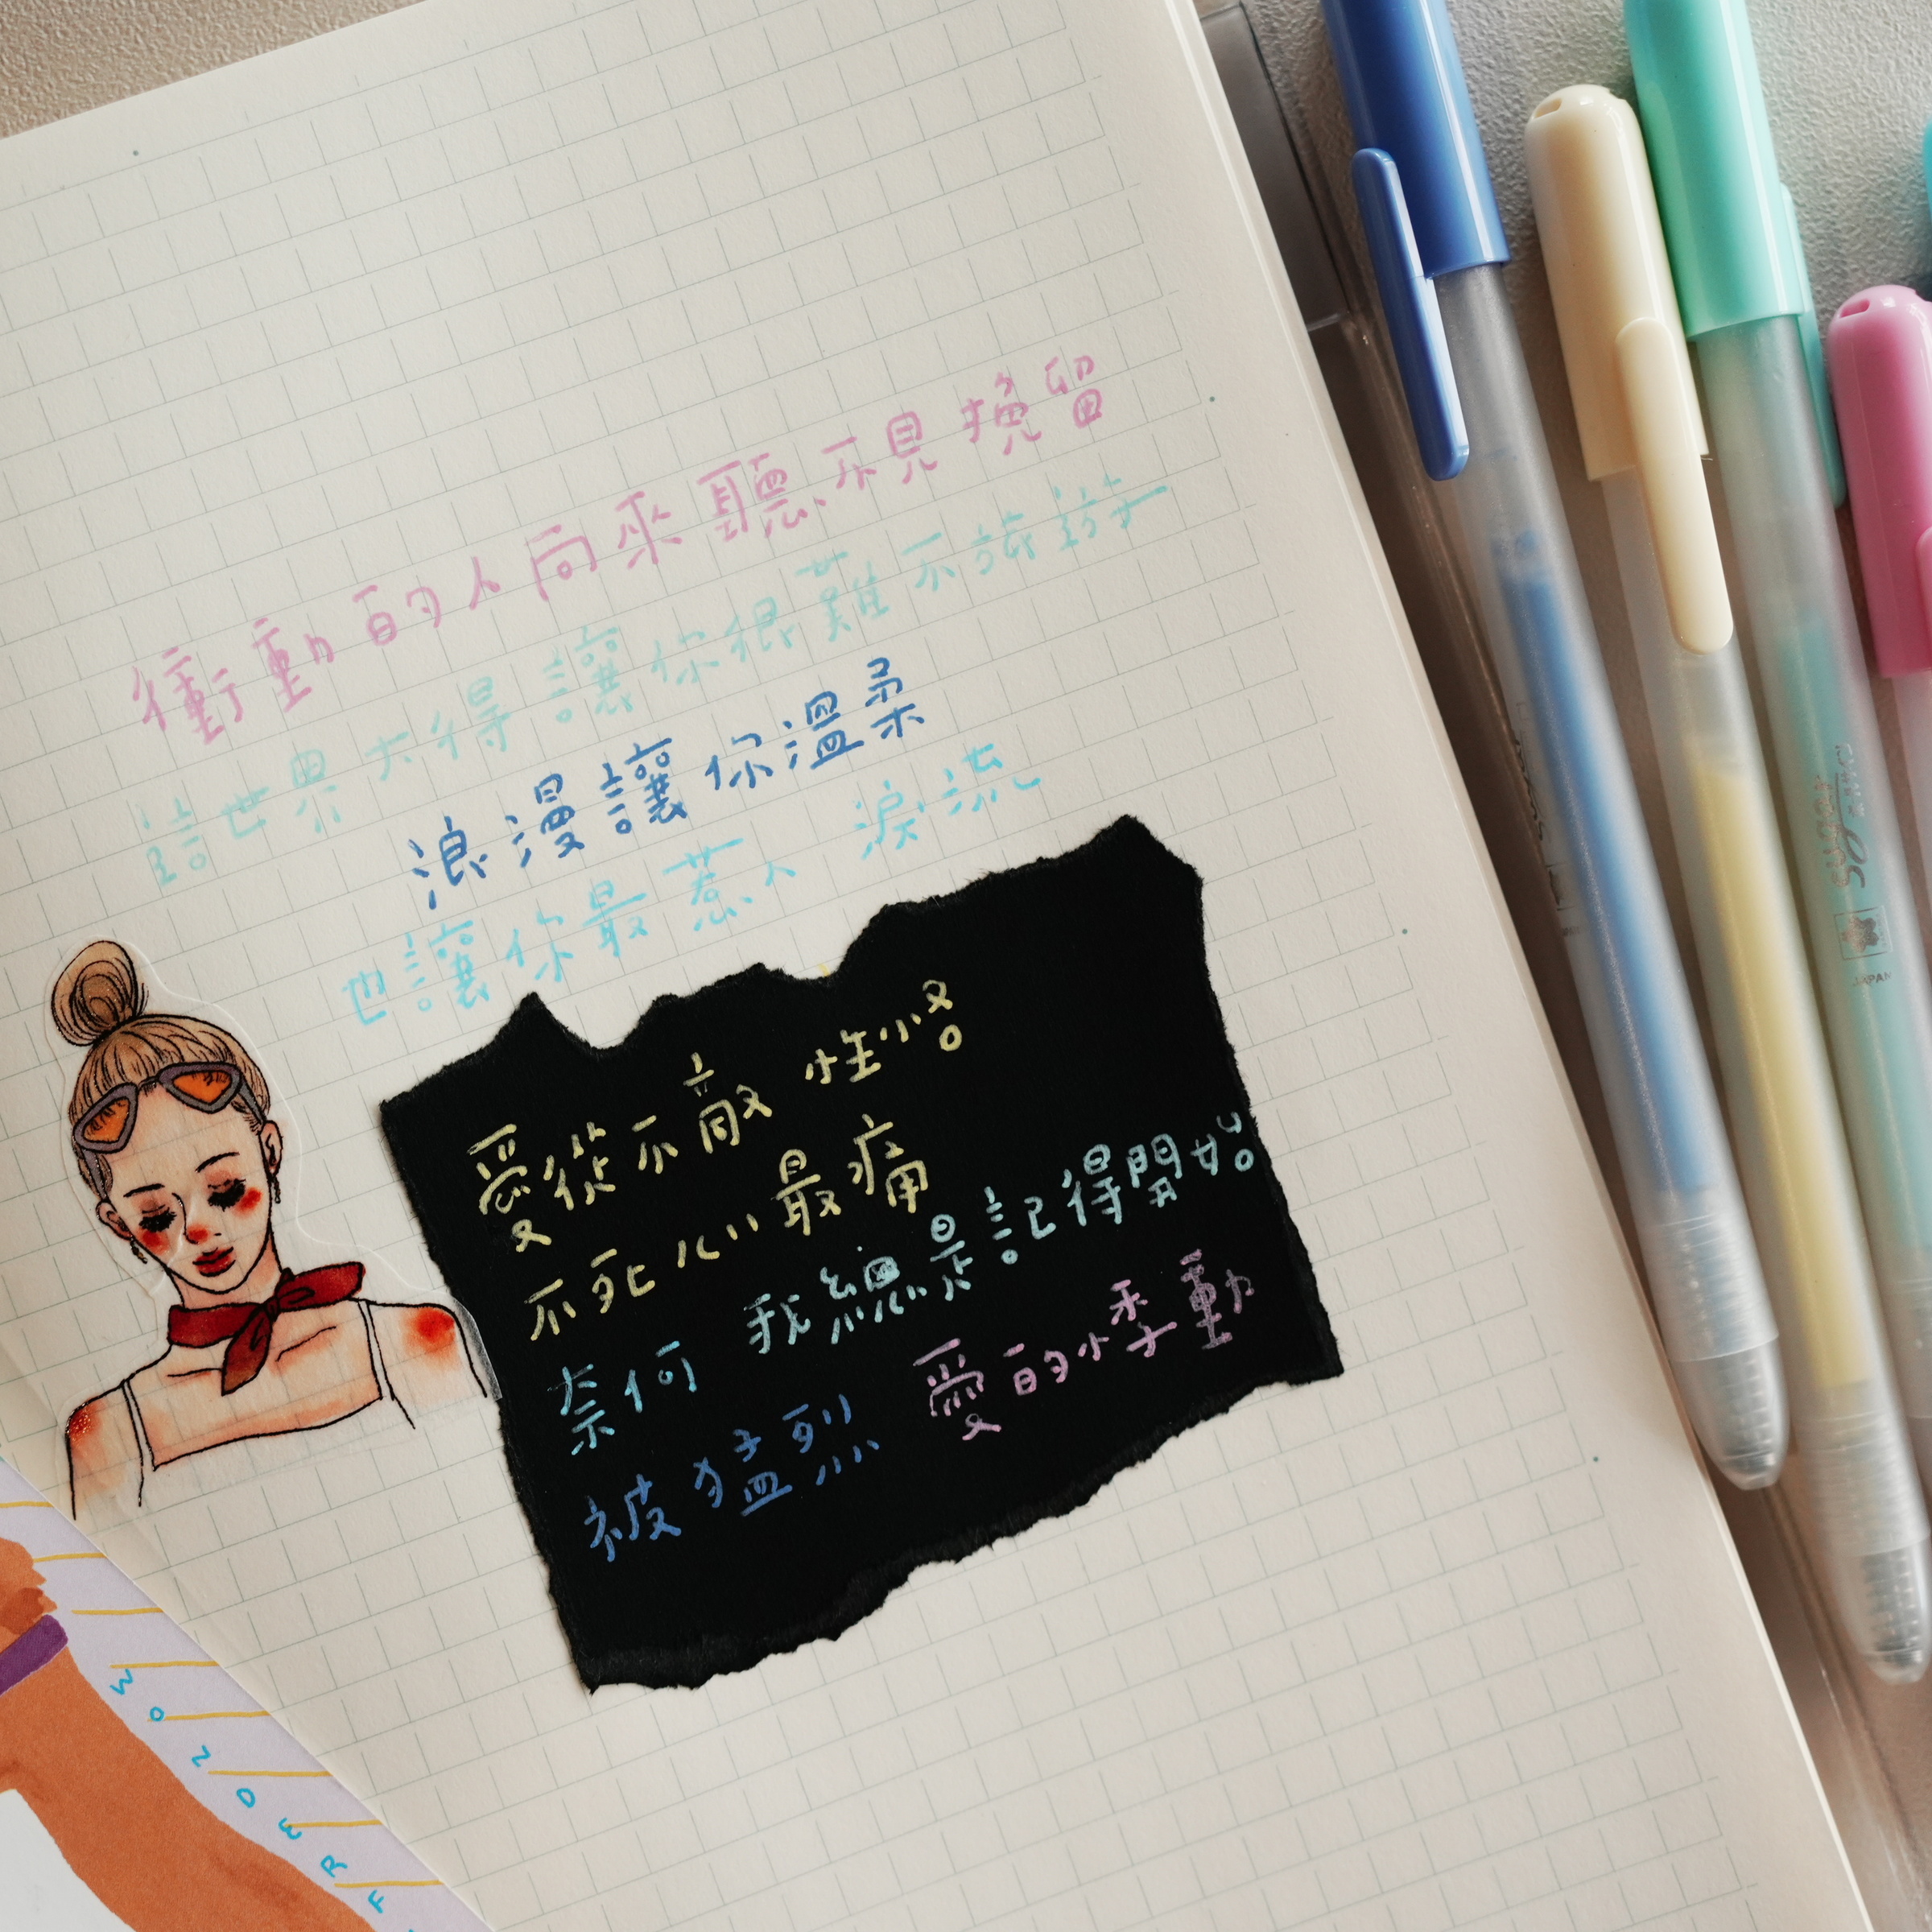 衝動的人向來聽不見挽留
這世界大得讓你很難不旅遊
浪漫讓你溫柔
也讓你最惹人 淚流
愛從不敵 性格
不死心 最痛
奈何 我總是記得開始
被猛烈 愛的悸動
WONDERF
JAPAN